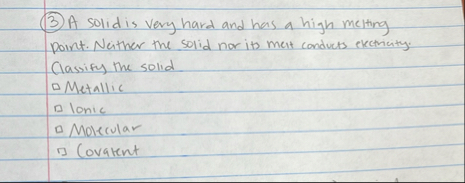 ③ A solid is very hard and has a high melting
point. Neither the solid nor its melt conducts electricity.
Classify the solid
□ Metallic
□ Ionic
□ Molecular
□ Covalent